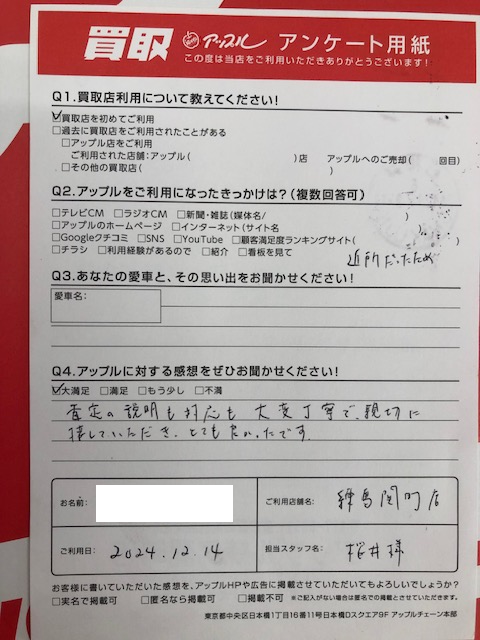 買取 アップル アンケート用紙
この度は当店をご利用いただきありがとうございます！
Q1.買取店利用について教えてください！
☑買取店を初めてご利用
□過去に買取店をご利用されたことがある
□アップル店をご利用
ご利用された店舗：アップル（ ）店 アップルへのご売却（ 回目）
□その他の買取店（ ）
Q2.アップルをご利用になったきっかけは？（複数回答可）
□テレビCM □ラジオCM □新聞・雑誌（媒体名/ ）
□アップルのホームページ □インターネット（サイト名 ）
□Googleクチコミ □SNS □YouTube □顧客満足度ランキングサイト（ ）
□チラシ □利用経験があるので □紹介 □看板を見て 近所だったため
Q3.あなたの愛車と、その思い出をお聞かせください！
愛車名：
Q4.アップルに対する感想をぜひお聞かせください！
☑大満足 □満足 □もう少し □不満
査定の説明も対応も大変丁寧で、親切に
接していただき、とても良かったです。
お名前： ご利用店舗名： 練馬関町店
ご利用日： 2024.12.14 担当スタッフ名： 桜井様
お客様に書いていただいた感想を、アップルHPや広告に掲載させていただいてもよろしいでしょうか？
□実名で掲載可 □匿名なら掲載可 □掲載不可 ※ご記入がない場合は匿名での掲載とさせていただきます。
東京都中央区日本橋1丁目16番11号日本橋Dスクエア9F アップルチェーン本部